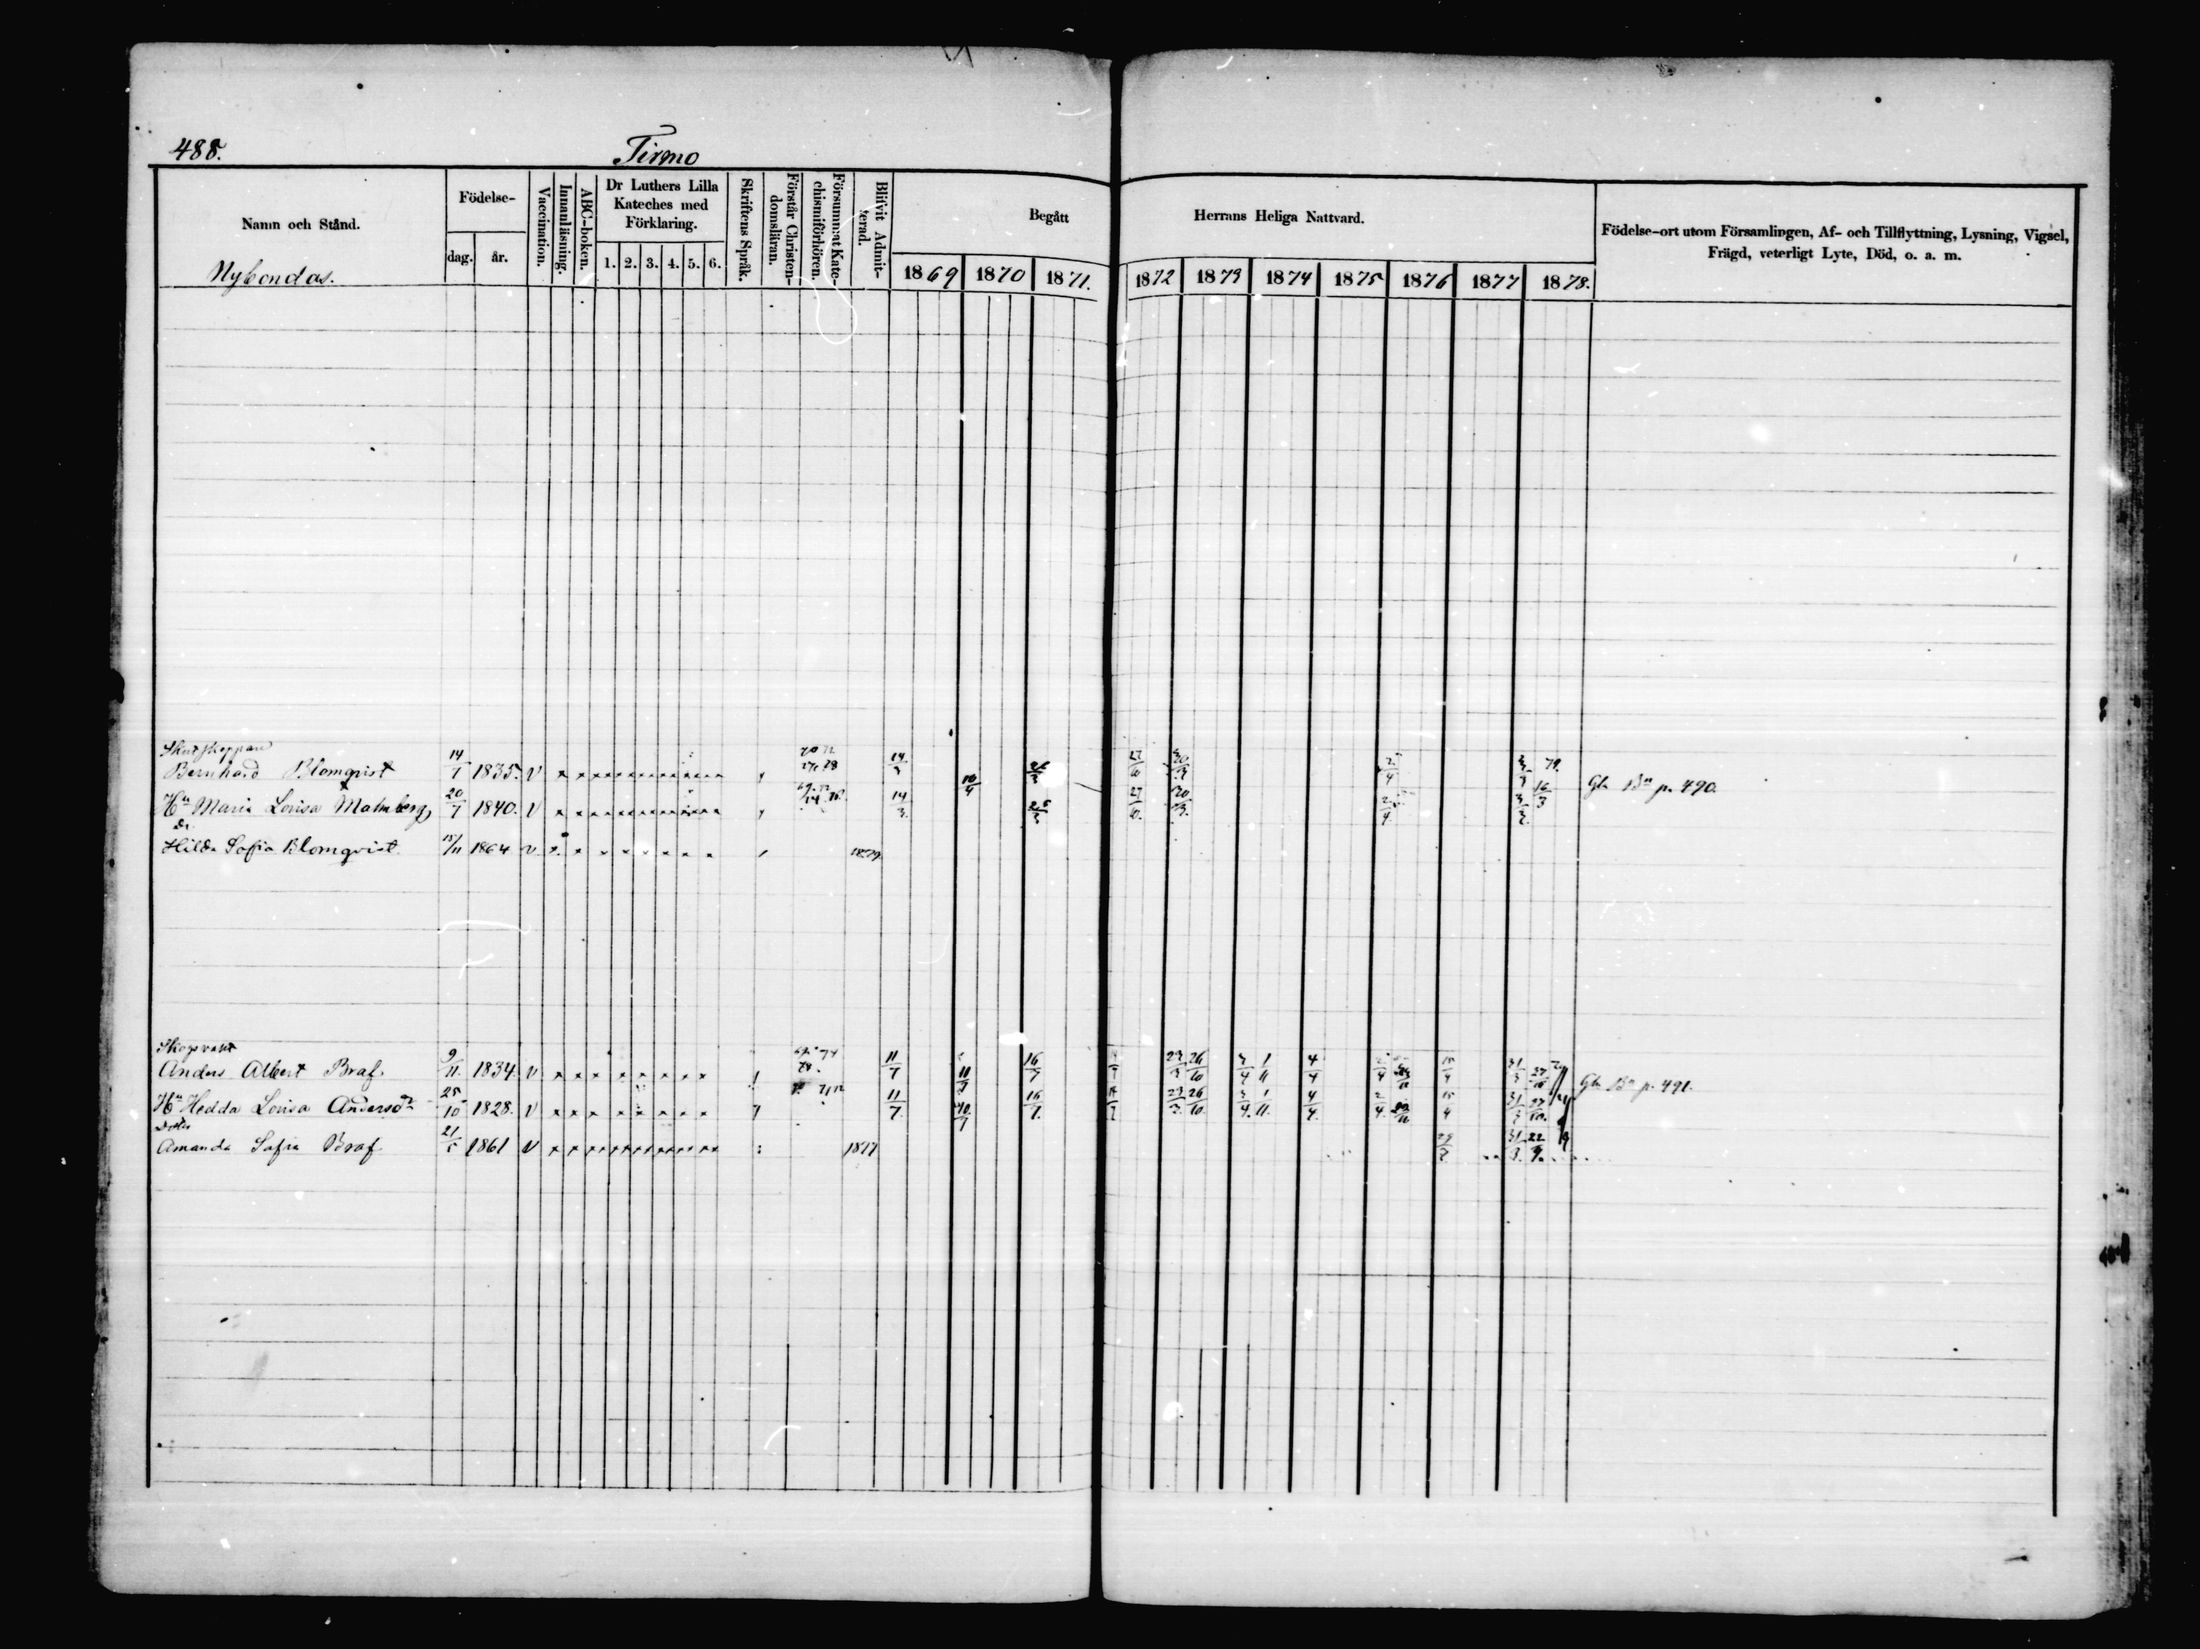 488.
Tirmo
Namn och Stånd.
Nybondas.
Födelse-
dag. år.
Vaccination.
Innanläsning.
ABC-boken.
Dr Luthers Lilla
Kateches med
Förklaring.
1. 2. 3. 4. 5. 6.
Skriftens Språk.
Förstår Christen-
domsläran.
Försummat Kate-
chismiförhören.
Blifvit Admit-
terad.
Begått Herrans Heliga Nattvard.
1869 1870 1871. 1872 1873 1874 1875 1876 1877 1878.
Födelse-ort utom Församlingen, Af- och Tillflyttning, Lysning, Vigsel,
Frägd, veterligt Lyte, Död, o. a. m.
Bernhard Blomqvist 14/1 1835. v 14/3 10/4 27/10 30/3 2/4 Gla Bn p. 490.
Hu Maria Lovisa Malmberg 20/7 1840. v 14/3 27/10 30/3 2/4 3/3 16/3
Dr
Hilda Sofia Blomqvist 15/11 1864 v 1879
Anders Albert Braf. 9/11. 1834. v 11/7 11/7 16/7 23/3 26/10 3/4 1/11 4/4 2/4 15/4 31/3 27/10 Gla Bn p. 491.
Hu Hedda Lovisa Andersdr 25/10 1828. v 11/7. 10/7 16/7. 23/3. 26/10. 3/4. 1/11. 4/4. 2/4. 15/4 31/3 27/10.
Dotter
Amanda Sofia Braf 21/5 1861 v 1877 31/3. 22/9.